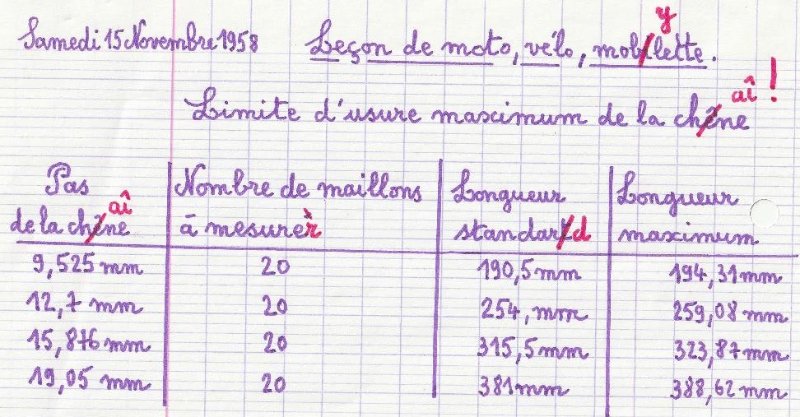 Samedi 15 Novembre 1958 Leçon de moto, vélo, mobylette.
Limite d'usure maximum de la chaîne !
Pas de la chaîne | Nombre de maillons à mesurer | Longueur standard | Longueur maximum
9,525 mm 20 190,5 mm 194,31 mm
12,7 mm 20 254, mm 259,08 mm
15,876 mm 20 315,5 mm 323,87 mm
19,05 mm 20 381 mm 388,62 mm